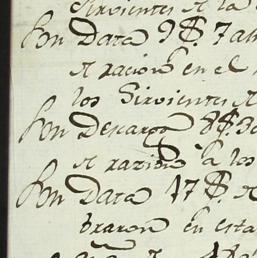 Sirvientes A la
Son Data 9$. 7
A racion en el
los Sirvientes A
Son Descargo 8$. 3
A razion a los
Son Data 17$. A
braron en esta